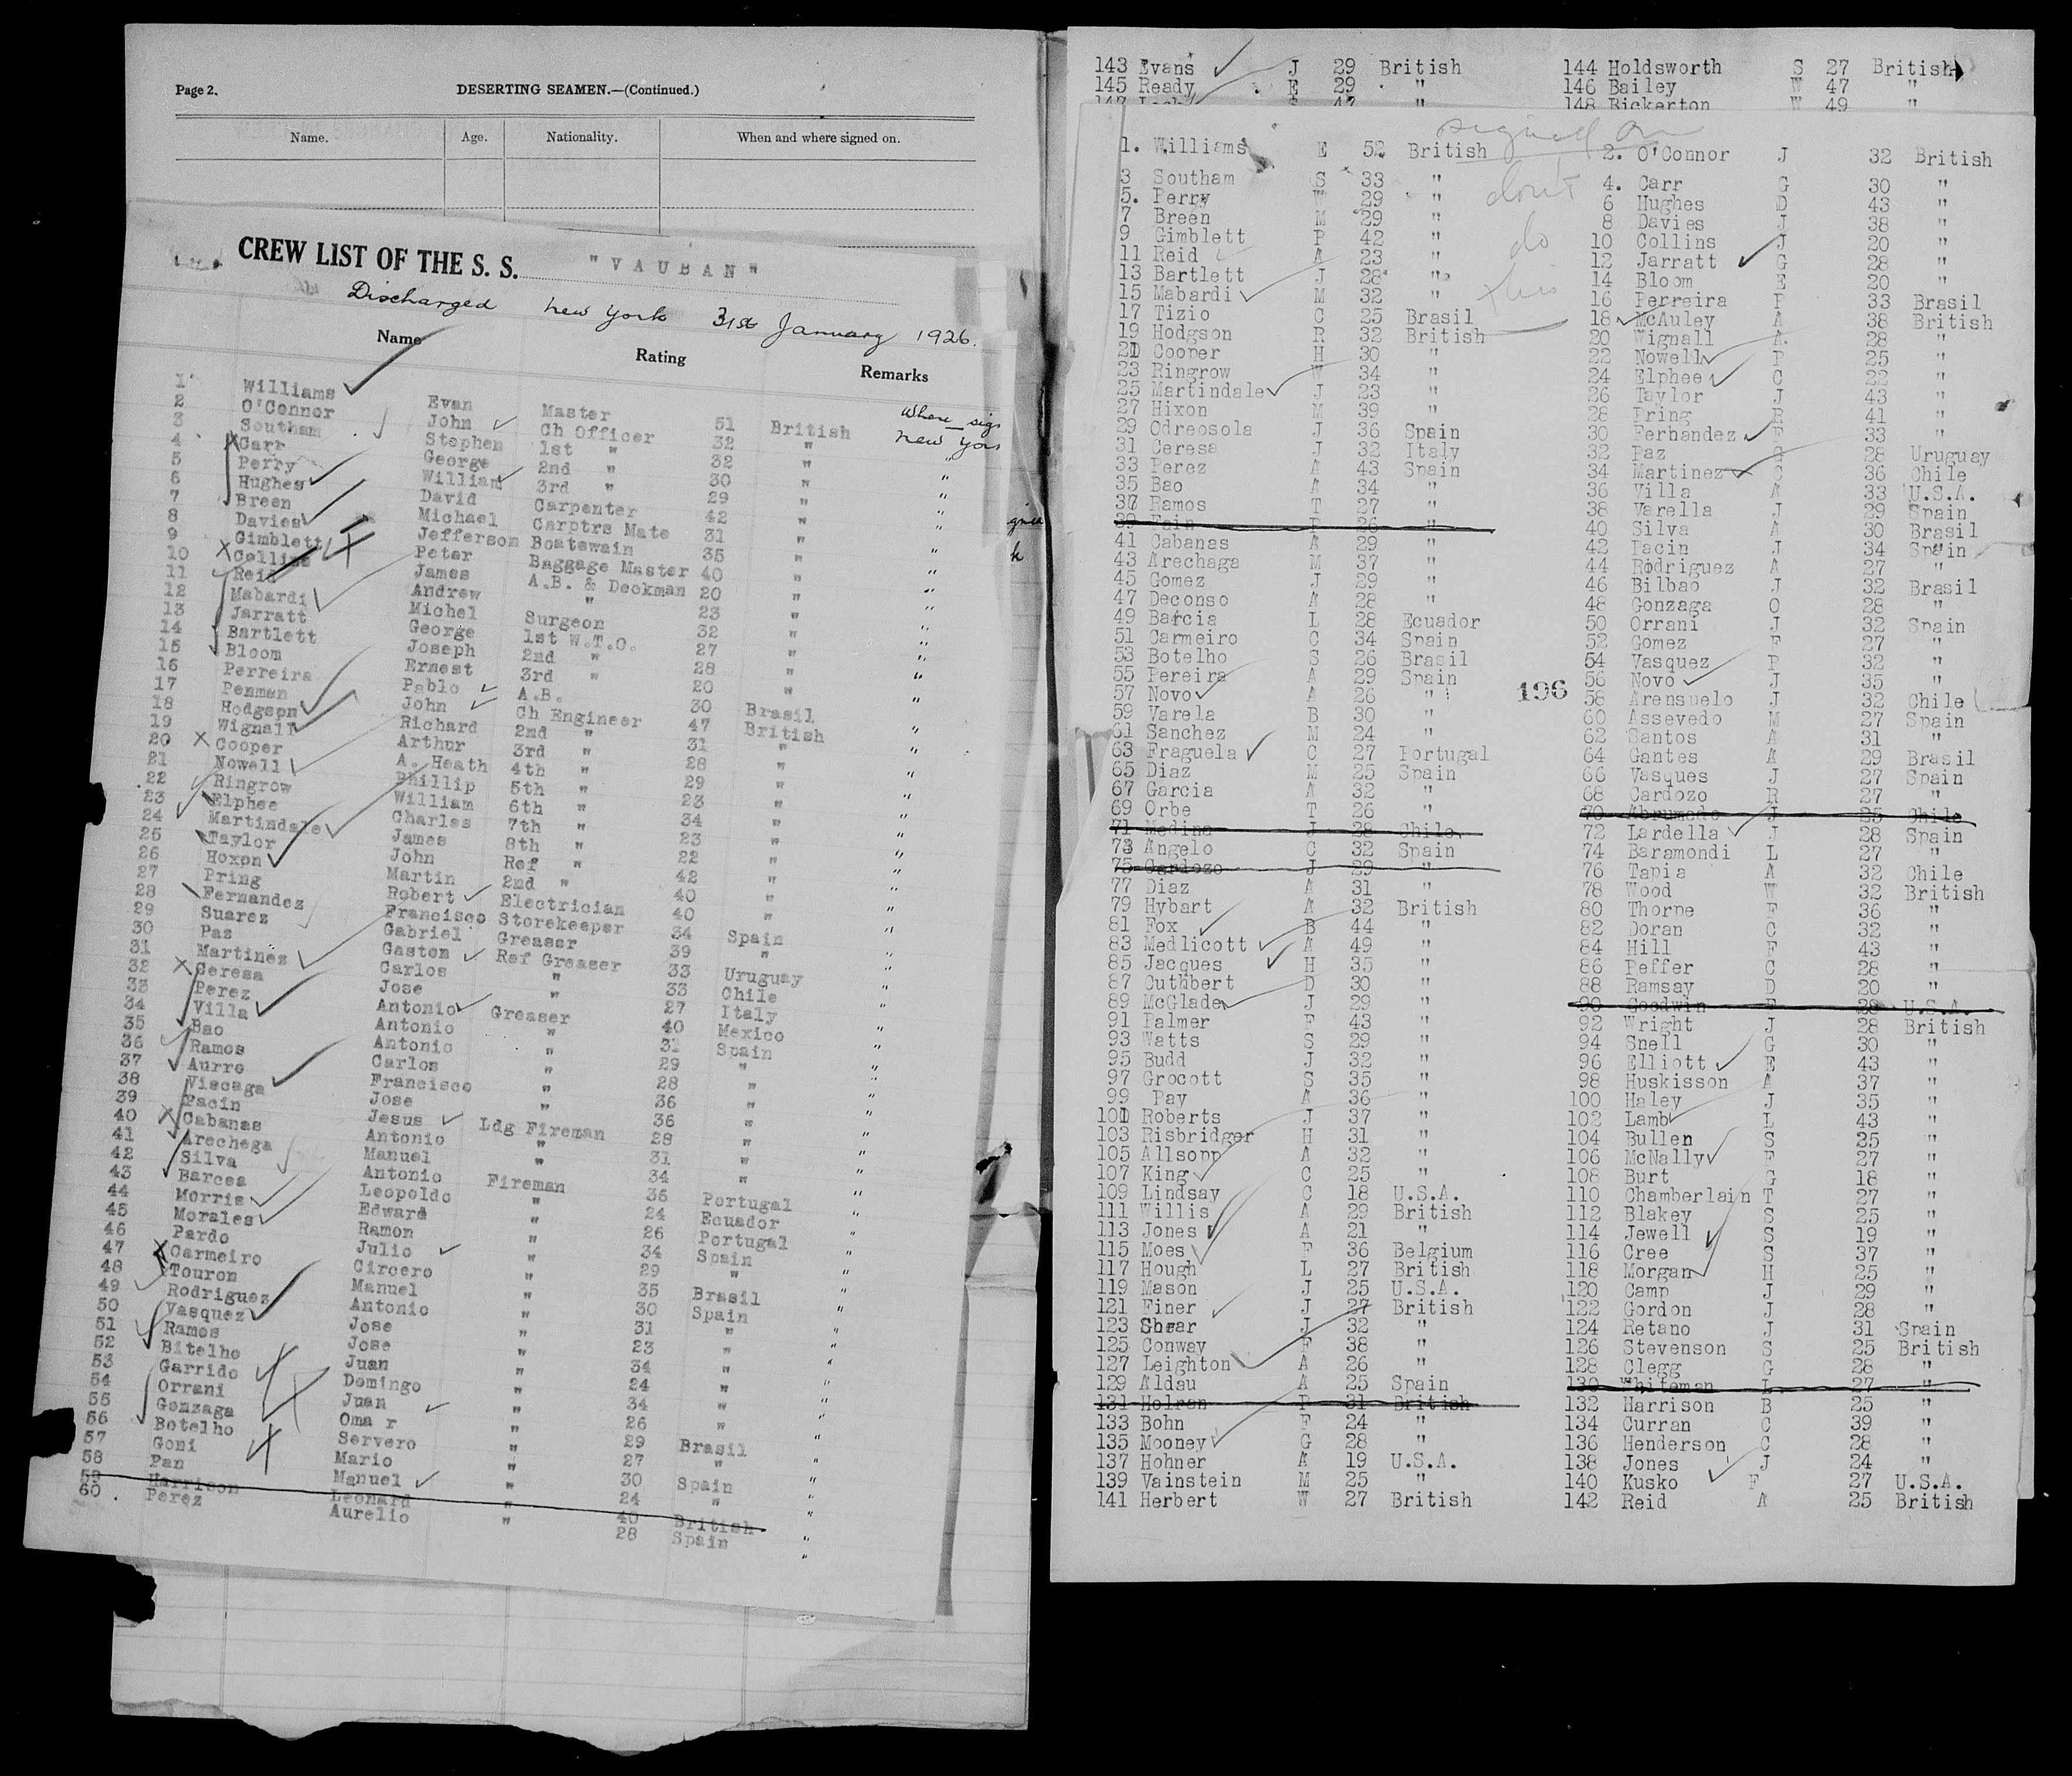 Page 2. DESERTING SEAMEN.—(Continued.)
Name. Age. Nationality. When and where signed on.
CREW LIST OF THE S. S. "VAUBAN"
Discharged New York 31st January 1926.
Name Rating Remarks
Where sig
1 Williams Evan Master 51 British New Yor
2 O'Connor John Ch Officer 32 " "
3 Southam Stephen 1st " 32 " "
4 Carr George 2nd " 30 " "
5 Perry William 3rd " 29 " "
6 Hughes David Carpenter 42 " "
7 Breen Michael Carptrs Mate 31 " "
8 Davies Jefferson Boatswain 35 " "
9 Gimblett Peter Baggage Master 40 " "
10 Collins James A.B. & Deckman 20 " "
11 Reid Andrew " 23 " "
12 Mabardi Michel Surgeon 32 " "
13 Jarratt George 1st W.T.O. 27 " "
14 Bartlett Joseph 2nd " 28 " "
15 Bloom Ernest 3rd " 20 " "
16 Perreira Pablo A.B. 30 Brasil "
17 Penman John Ch Engineer 47 British "
18 Hodgson Richard 2nd " 31 " "
19 Wignall Arthur 3rd " 28 " "
20 Cooper A. Heath 4th " 29 " "
21 Nowell Phillip 5th " 23 " "
22 Ringrow William 6th " 34 " "
23 Elphee Charles 7th " 23 " "
24 Martindale James 8th " 22 " "
25 Taylor John Ref " 42 " "
26 Hoxon Martin 2nd " 40 " "
27 Pring Robert Electrician 40 " "
28 Fernandez Francisco Storekeeper 34 Spain "
29 Suarez Gabriel Greaser 39 " "
30 Paz Gaston Ref Greaser 33 Uruguay "
31 Martinez Carlos " 33 Chile "
32 Ceresa Jose " 27 Italy "
33 Perez Antonio Greaser 40 Mexico "
34 Villa Antonio " 31 Spain "
35 Bao Antonio " 29 " "
36 Ramos Carlos " 28 " "
37 Aurre Francisco " 36 " "
38 Viscaga Jose " 36 " "
39 Pacin Jesus Ldg Fireman 28 " "
40 Cabanas Antonio " 31 " "
41 Arechega Manuel " 34 " "
42 Silva Antonio Fireman 36 Portugal "
43 Barcea Leopoldo " 24 Ecuador "
44 Morris Edward " 26 Portugal "
45 Morales Ramon " 34 Spain "
46 Pardo Julio " 29 " "
47 Carmeiro Circero " 35 Brasil "
48 Touron Manuel " 30 Spain "
49 Rodriguez Antonio " 31 " "
50 Vasquez Jose " 23 " "
51 Ramos Jose " 34 " "
52 Bitelho Juan " 24 " "
53 Garrido Domingo " 34 " "
54 Orrani Juan " 26 " "
55 Gonzaga Oma r " 29 Brasil "
56 Botelho Servero " 27 " "
57 Goni Mario " 30 Spain "
58 Pan Manuel " 24 " "
59 Harrison Leonard " 40 British "
60 Perez Aurelio " 28 Spain "
143 Evans J 29 British 144 Holdsworth S 27 British
145 Ready E 29 " 146 Bailey W 47 "
147 47 " 148 Bickerton W 49 "
signed on
don't
do
this
1. Williams E 52 British 2. O'Connor J 32 British
3 Southam S 33 " 4. Carr G 30 "
5. Perry W 29 " 6 Hughes D 43 "
7 Breen M 29 " 8 Davies J 38 "
9 Gimblett P 42 " 10 Collins J 20 "
11 Reid A 23 " 12 Jarratt G 28 "
13 Bartlett J 28 " 14 Bloom E 20 "
15 Mabardi M 32 " 16 Perreira P 33 Brasil
17 Tizio C 25 Brasil 18 McAuley A 38 British
19 Hodgson R 32 British 20 Wignall A. 28 "
21 Cooper H 30 " 22 Nowell P 25 "
23 Ringrow W 34 " 24 Elphee C 22 "
25 Martindale J 23 " 26 Taylor J 43 "
27 Hixon M 39 " 28 Pring R 41 "
29 Odreosola J 36 Spain 30 Fernandez F 33 "
31 Ceresa J 32 Italy 32 Paz G 28 Uruguay
33 Perez A 43 Spain 34 Martinez C 36 Chile
35 Bao A 34 " 36 Villa A 33 U.S.A.
37 Ramos T 27 " 38 Varella J 29 Spain
39 Fain P 26 " 40 Silva A 30 Brasil
41 Cabanas A 29 " 42 Pacin J 34 Spain
43 Arechaga M 37 " 44 Rodriguez A 27 "
45 Gomez J 29 " 46 Bilbao J 32 Brasil
47 Deconso A 28 " 48 Gonzaga O 28 "
49 Barcia L 28 Ecuador 50 Orrani J 32 Spain
51 Carmeiro C 34 Spain 52 Gomez F 27 "
53 Botelho S 26 Brasil 54 Vasquez P 32 "
55 Pereira A 29 Spain 56 Novo J 35 "
196
57 Novo A 26 " 58 Arensuelo J 32 Chile
59 Varela B 30 " 60 Assevedo M 27 Spain
61 Sanchez M 24 " 62 Santos A 31 "
63 Fraguela C 27 Portugal 64 Gantes A 29 Brasil
65 Diaz M 25 Spain 66 Vasques J 27 Spain
67 Garcia A 32 " 68 Cardozo R 27 "
69 Orbe T 26 " 70 Abrumedo J 25 Chile
71 Medina J 28 Chile 72 Lardella J 28 Spain
73 Angelo C 32 Spain 74 Baramondi L 27 "
75 Cardozo J 29 " 76 Tapia A 32 Chile
77 Diaz A 31 " 78 Wood W 32 British
79 Hybart A 32 British 80 Thorpe F 36 "
81 Fox B 44 " 82 Doran C 32 "
83 Medlicott A 49 " 84 Hill F 43 "
85 Jacques H 35 " 86 Peffer C 28 "
87 Cuthbert D 30 " 88 Ramsay D 20 "
89 McGlade J 29 " 90 Goodwin F 28 U.S.A.
91 Palmer F 43 " 92 Wright J 28 British
93 Watts S 29 " 94 Snell G 30 "
95 Budd J 32 " 96 Elliott E 43 "
97 Grocott S 35 " 98 Huskisson A 37 "
99 Pay A 36 " 100 Haley J 35 "
101 Roberts J 37 " 102 Lamb L 43 "
103 Risbridger H 31 " 104 Bullen S 25 "
105 Allsopp A 32 " 106 McNally F 27 "
107 King C 25 " 108 Burt G 18 "
109 Lindsay C 18 U.S.A. 110 Chamberlain T 27 "
111 Willis A 29 British 112 Blakey S 25 "
113 Jones A 21 " 114 Jewell S 19 "
115 Moes F 36 Belgium 116 Cree S 37 "
117 Hough L 27 British 118 Morgan H 25 "
119 Mason J 25 U.S.A. 120 Camp J 29 "
121 Finer J 27 British 122 Gordon J 28 "
123 Shear J 32 " 124 Retano J 31 Spain
125 Conway F 38 " 126 Stevenson S 25 British
127 Leighton A 26 " 128 Clegg G 28 "
129 Aldau A 25 Spain 130 Whiteman L 27 "
131 Holran P 31 British 132 Harrison B 25 "
133 Bohn F 24 " 134 Curran C 39 "
135 Mooney G 28 " 136 Henderson C 28 "
137 Hohner A 19 U.S.A. 138 Jones J 24 "
139 Vainstein M 25 " 140 Kusko F 27 U.S.A.
141 Herbert W 27 British 142 Reid A 25 British